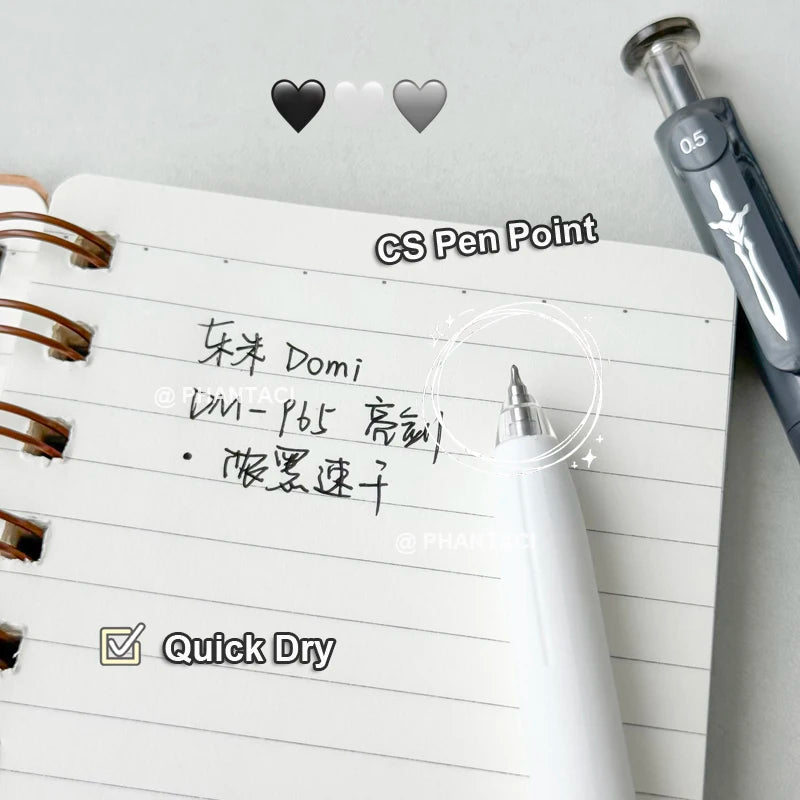 0.5
CS Pen Point
东米 Domi
@ PHANTACI
DM-P65 亮剑
· 浓黑速干
@ PHANTACI
Quick Dry